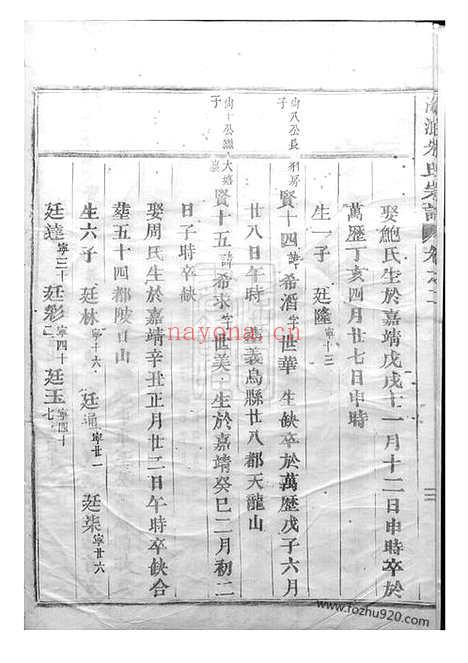 朱氏宗譜 卷之二
娶鮑氏生於嘉靖戊戌十一月十二日申時卒於
萬歷丁亥四月廿七日申時
生一子 廷隆寧十三
尚八公長子
賢十四諱希酒字世華 生缺卒於萬歷戊子六月
廿八日午時 義烏縣廿八都天龍山
尚十公繼
賢十五諱希求字世美 生於嘉靖癸巳二月初二
日子時卒缺
娶周氏生於嘉靖辛丑正月廿二日午時卒缺合
塟五十四都陂口山
生六子 廷林寧十六 廷通寧廿一 廷柒寧廿六
廷達寧三十 廷彩寧四十二 廷玉寧四十七
三
nayona.cn
www.fozhu920.com